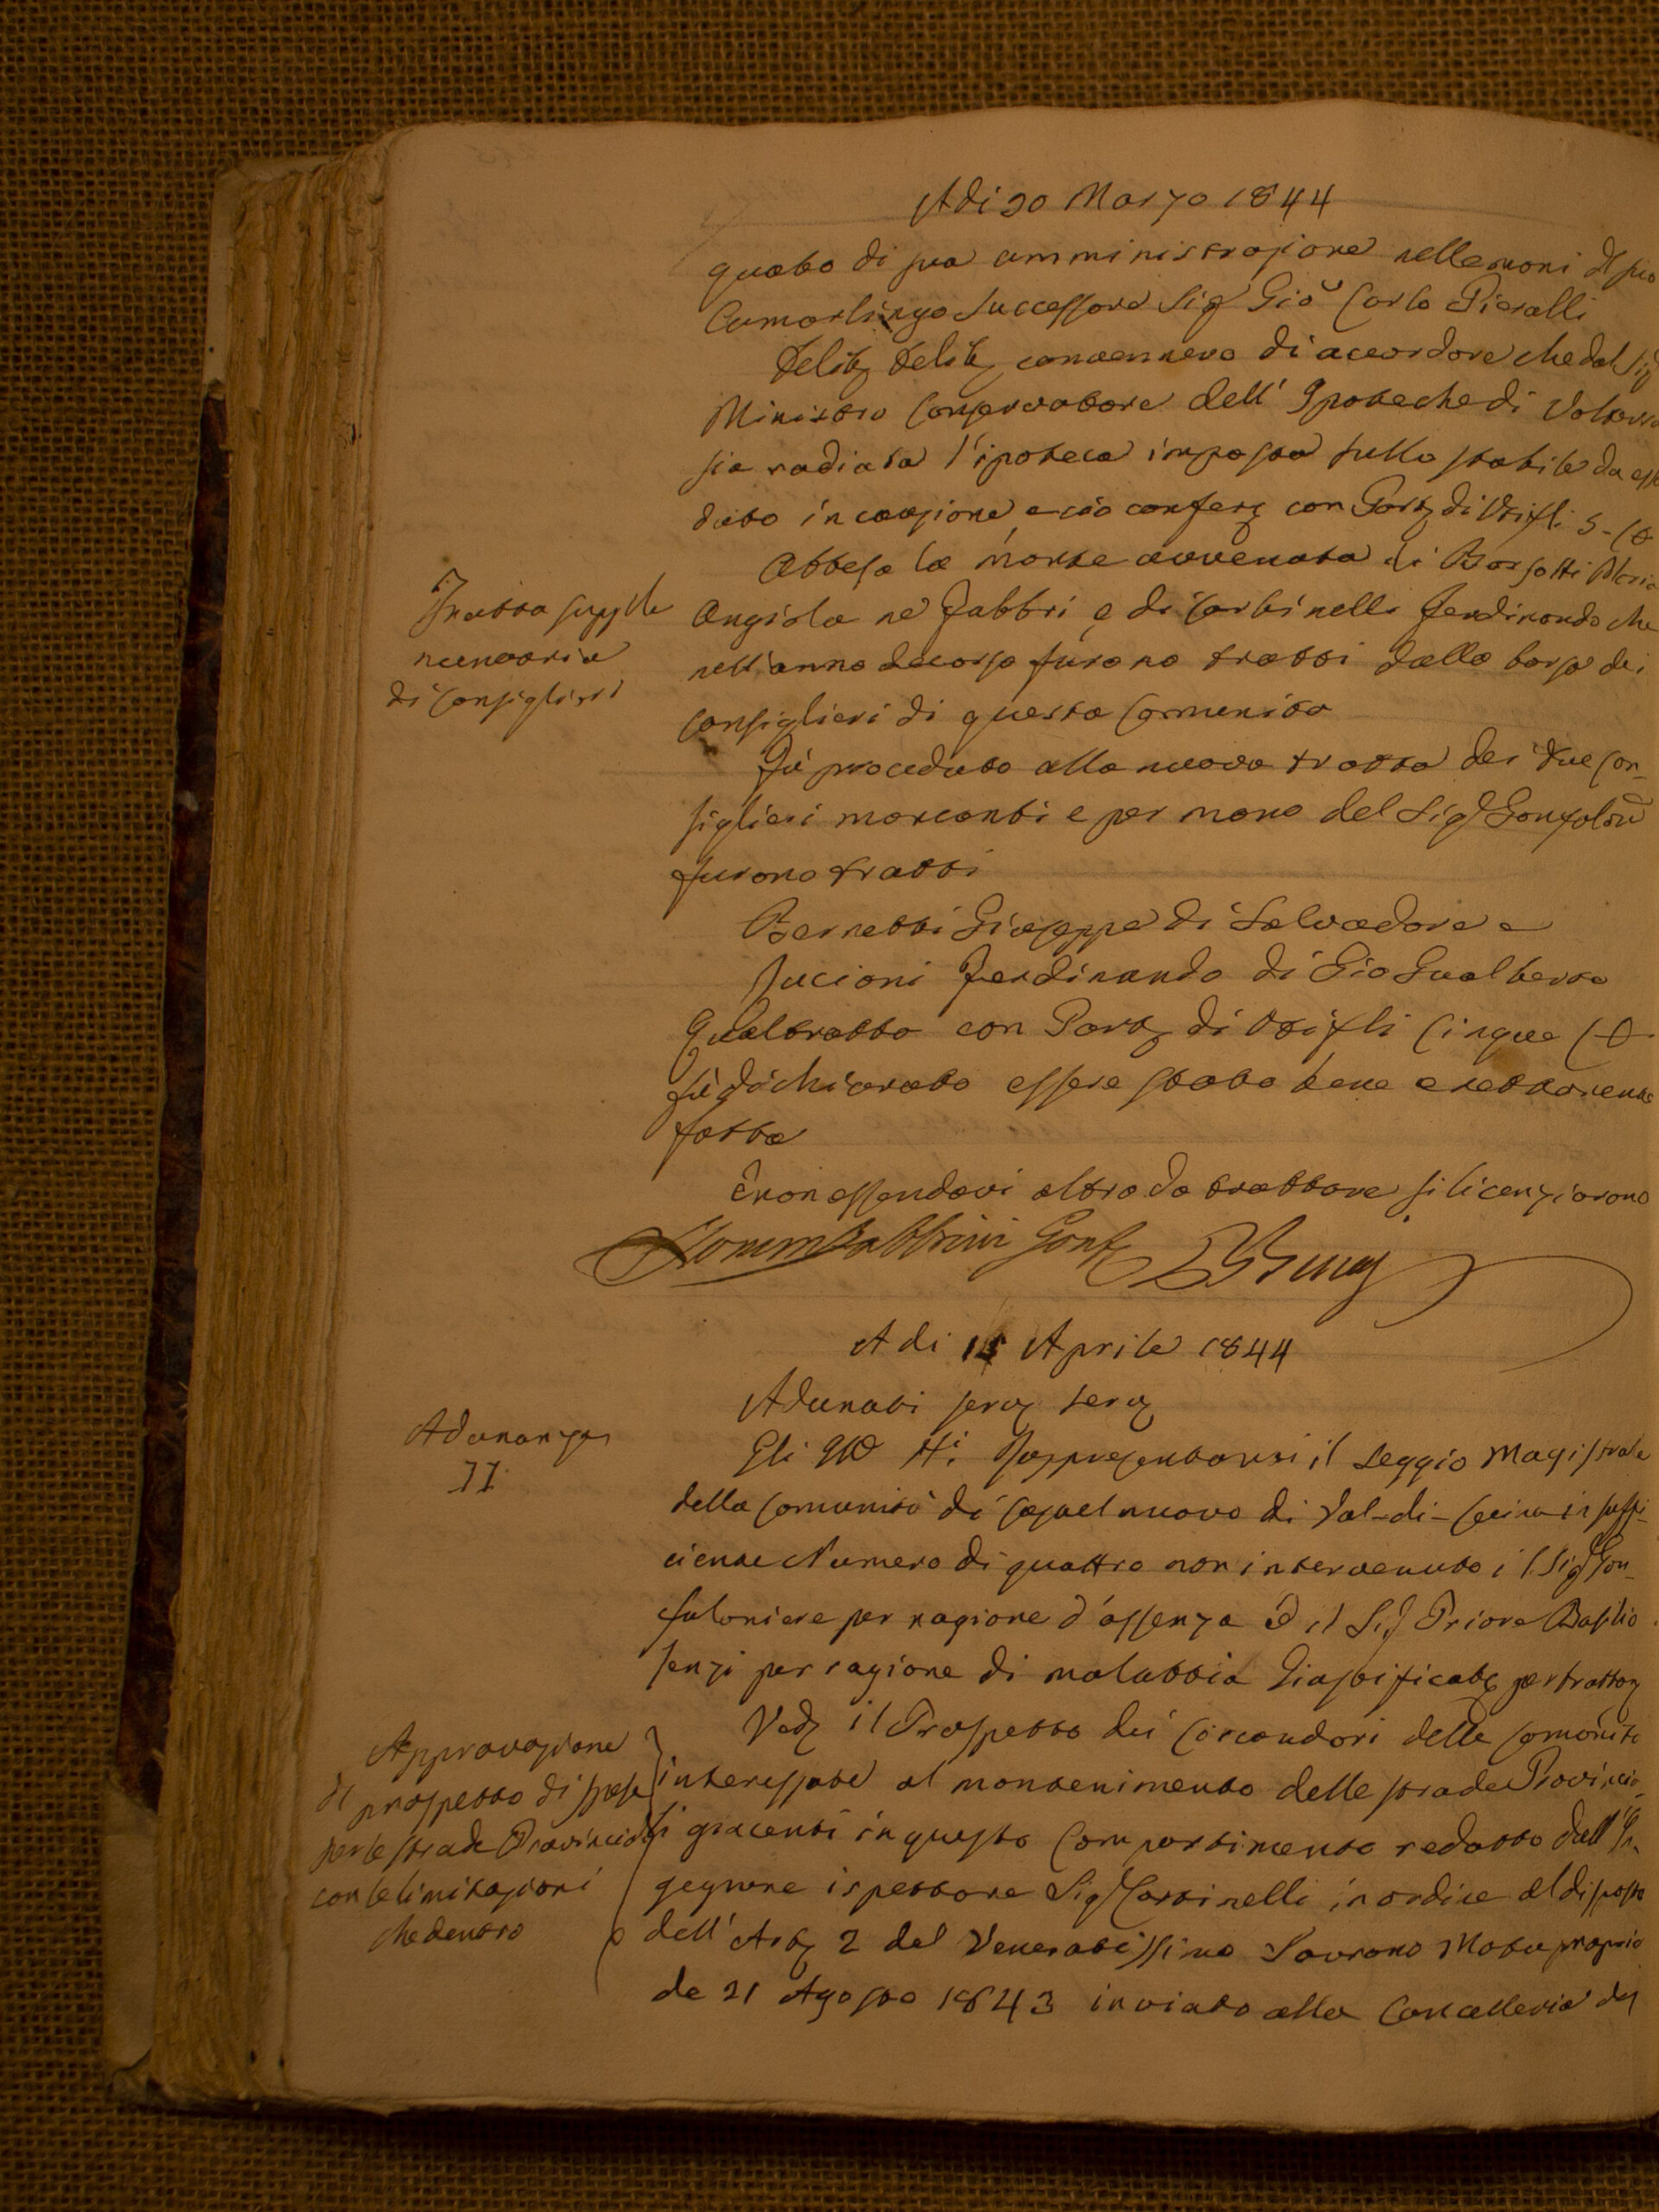 Adi 30 Marzo 1844
quato di sua amministrazione nelle mani del suo
Camarlingo Successore Sig Gio Carlo Pieralli
Delib Delib convennero di accordare che dal Sig
Ministro Conservatore dell' Ipoteche di Volterra
sia radiata l'ipoteca imposta sullo stabile da esso
dato in cauzione e ciò con Part di Voti f.li 5
Tratta supple
mentaria
di Consiglieri
Attesa la morte avvenuta di Bargotti Maria
Angiola ne Fabbri e di Carbinelli Ferdinando che
nell'anno decorso furono tratti dalla borsa dei
Consiglieri di questa Comunità
Fù proceduto alla nuova tratta dei due Con-
siglieri mancanti e per mano del Sig Gonfalon
furono tratti
Bernetti Giuseppe di Salvadore e
Lucioni Ferdinando di Gio Gualberto
Qual tratto con Part di Voti f.li Cinque
fù dichiarato essere stato bene e rettamente
fatta
E non essendovi altro da trattare si licenziarono
Gonf
A di 15 Aprile 1844
Adunati serv serv
Adunanza
II
Gli Ill Si Rappresentanti il Seggio Magistrale
della Comunità di Casal nuovo di Val-di-Cecina in suffi-
ciente Numero di quattro non intervenuto il Sig Gon-
faloniere per ragione d'assenza e il Sig Priore Basilio
per ragione di malattia Giustificate per trattoz
Approvazione
del prospetto di spese
per le strade Provinciali
con le limitazioni
che dentro
Ved il Prospetto dei Circondari delle Comunità
interessate al mantenimento delle strade Provincia-
li giacenti in questo Compartimento redatto dall'In-
gegnere ispettore Sig in ordine al disposto
dell' Art 2 del Veneratissimo Sovrano Motuproprio
de 21 Agosto 1843 inviato alla Cancelleria dez